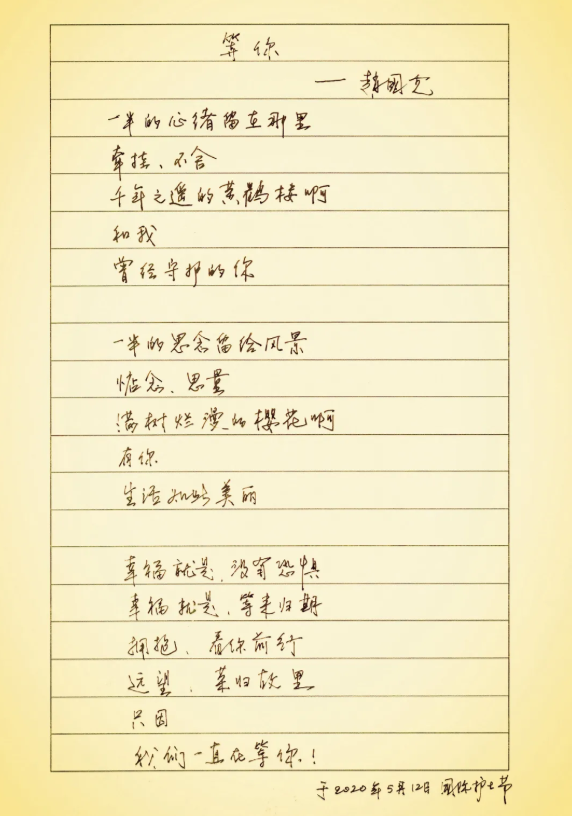 等你
——赵国光
一半的心绪留在那里
牵挂、不舍
千年之遥的黄鹤楼啊
和我
曾经守护的你
一半的思念留给风景
惦念、思量
满树烂漫的樱花啊
有你
生活如此美丽
幸福就是,没有恐惧
幸福就是,等来归期
拥抱、看你前行
远望、荣归故里
只因
我们一直在等你!
于2020年5月12日 国际护士节